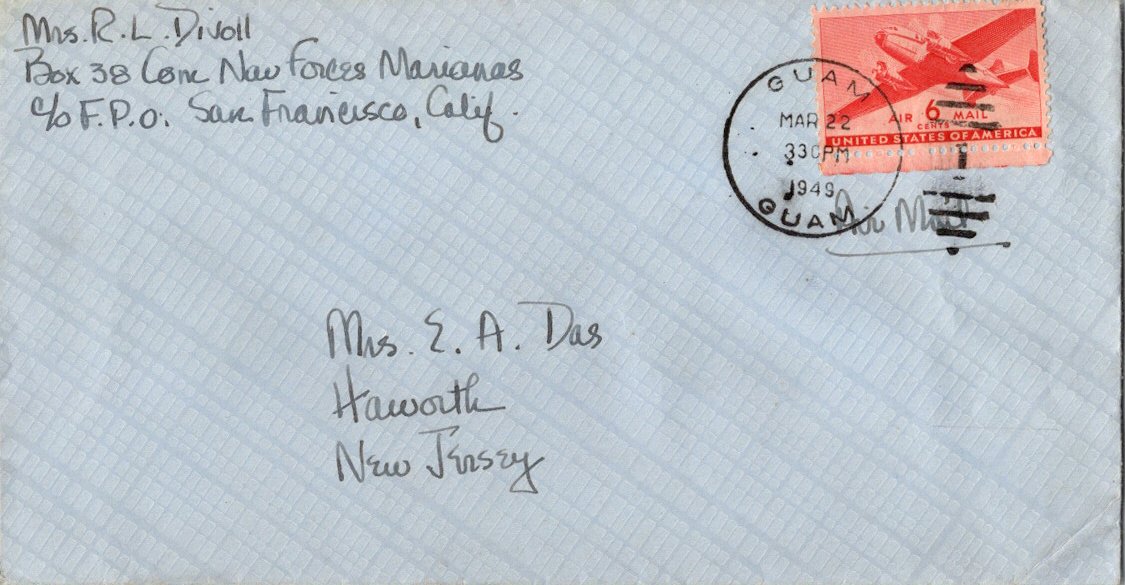 Mrs. R. L. Divoll
Box 38 Com Nav Forces Marianas
c/o F.P.O. San Francisco, Calif.
GUAM
MAR 22
330PM
1949
GUAM
AIR 6 MAIL
CENTS
UNITED STATES OF AMERICA
Air Mail
Mrs. E. A. Das
Haworth
New Jersey